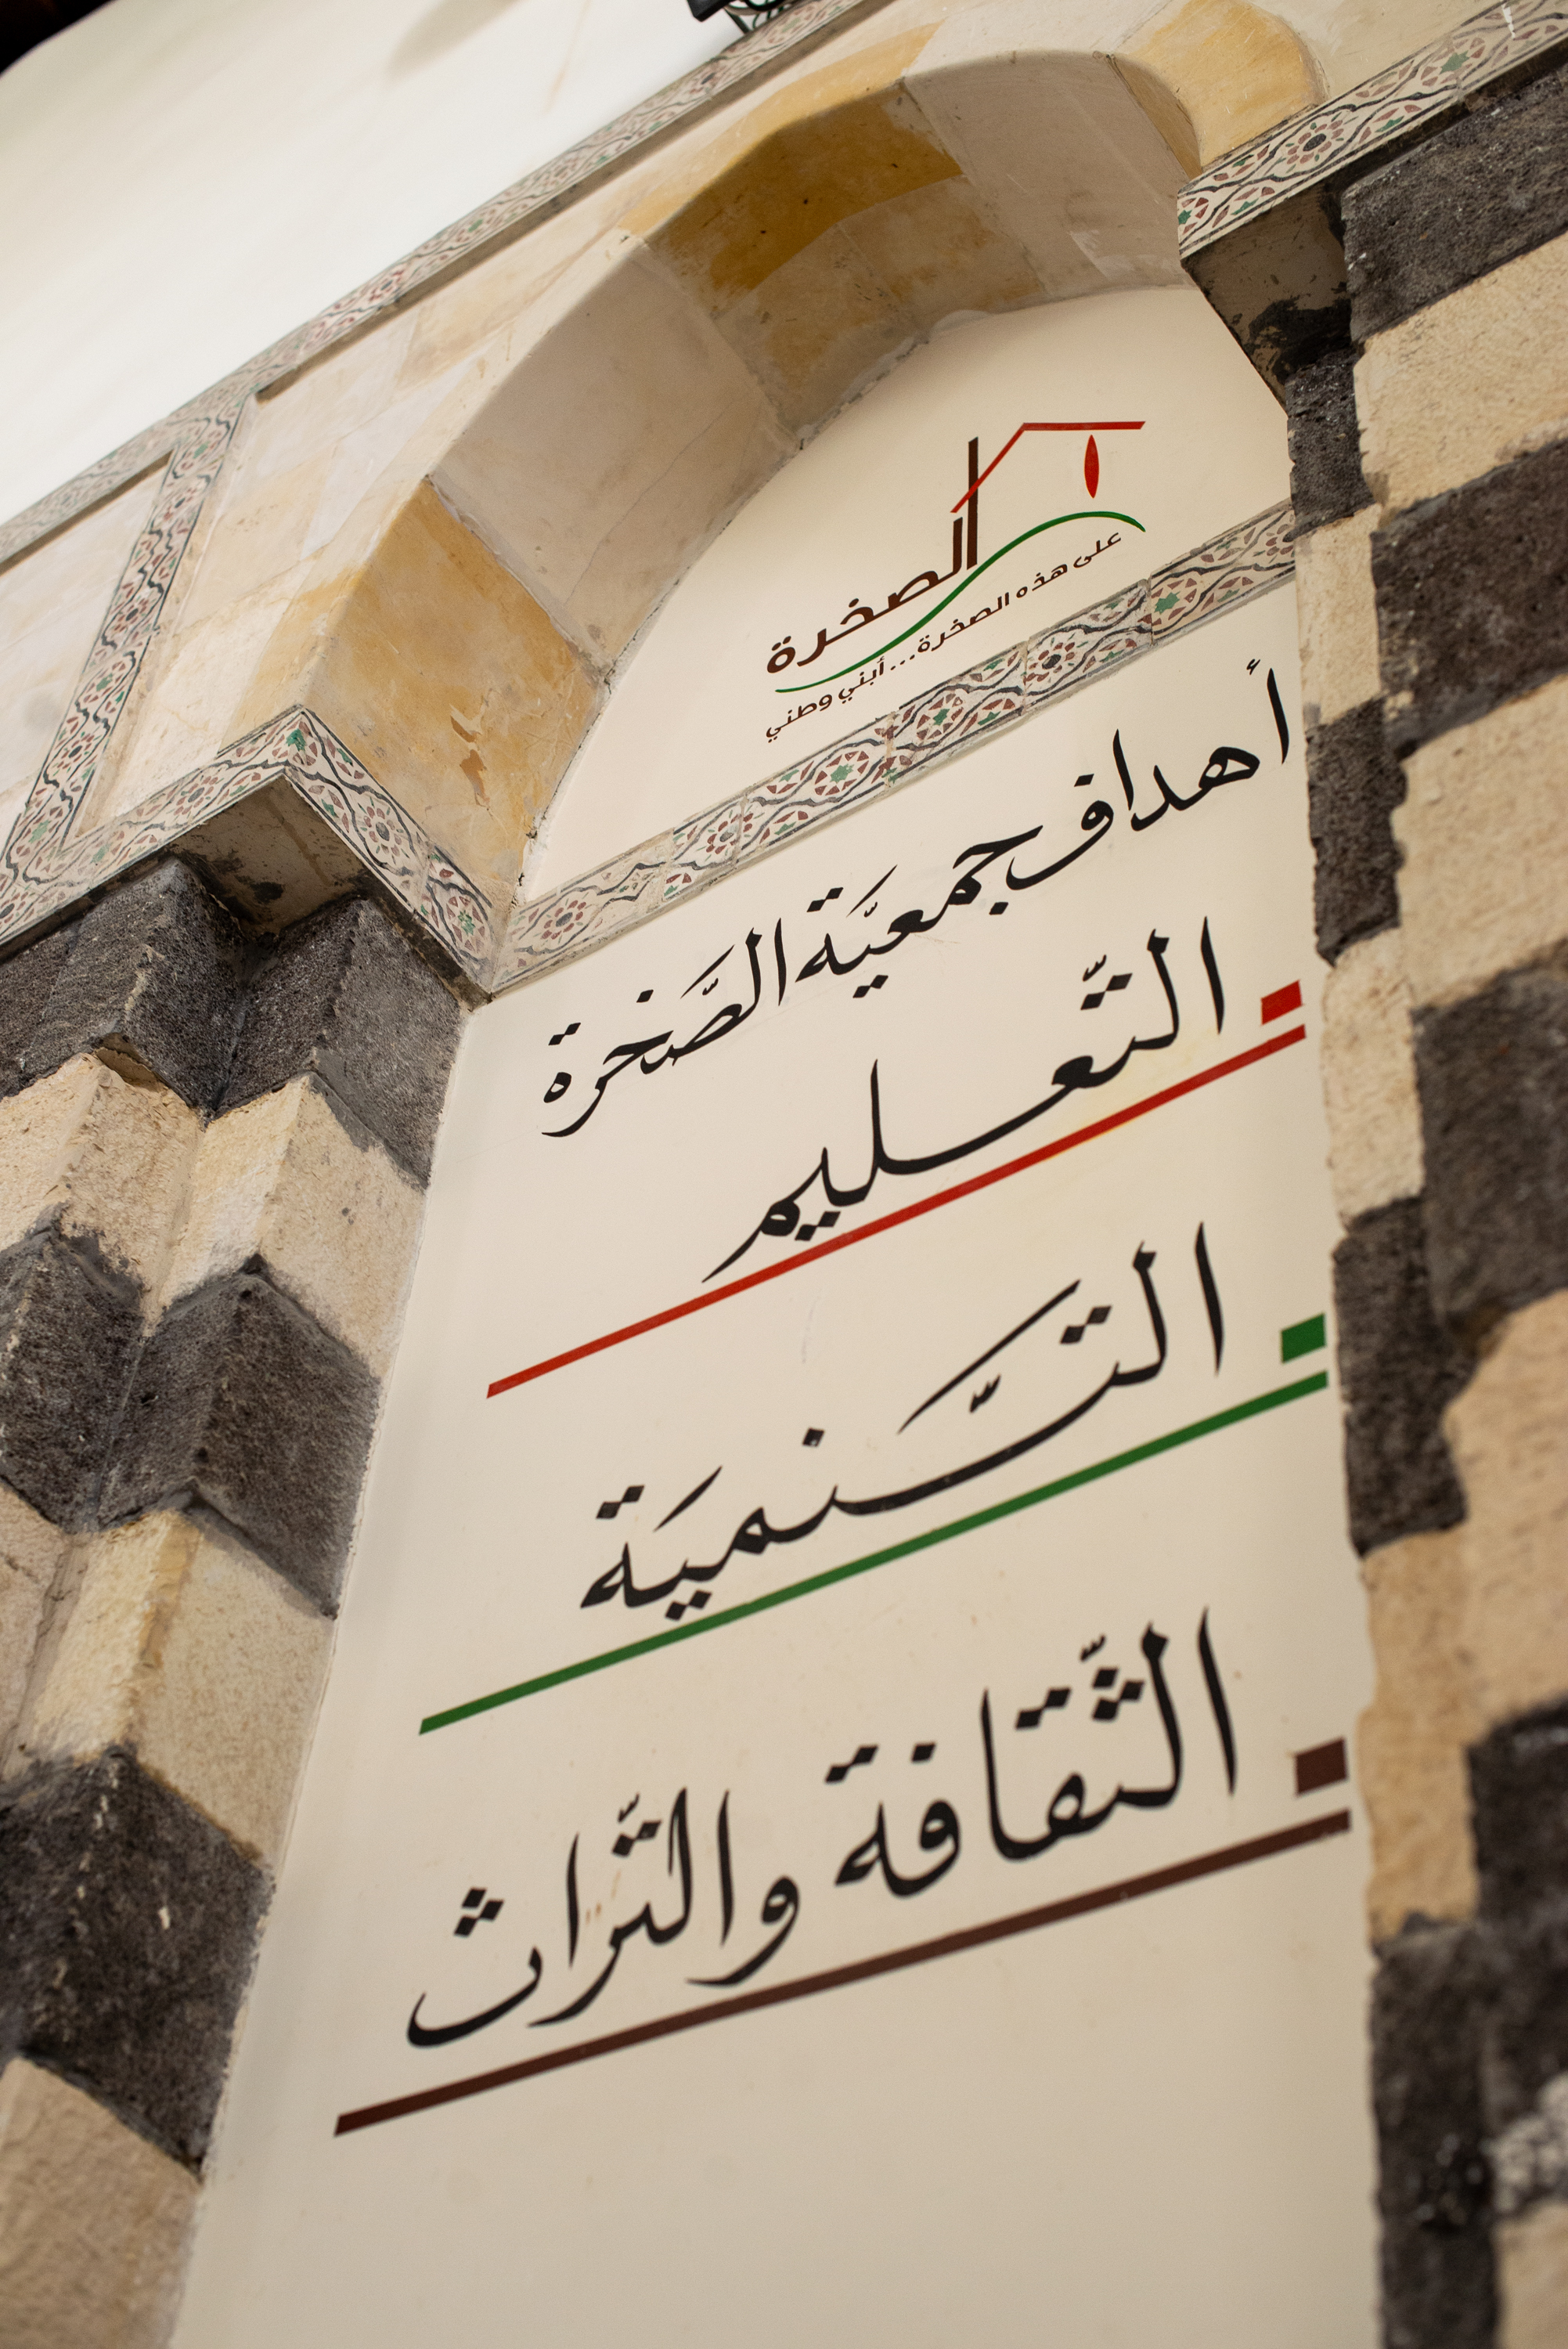 الصخرة
على هذه الصخرة...أبني وطني
أهداف جمعيَّة الصَّخرة
التّعليم
التَّنميَة
الثّقافة والتّراث